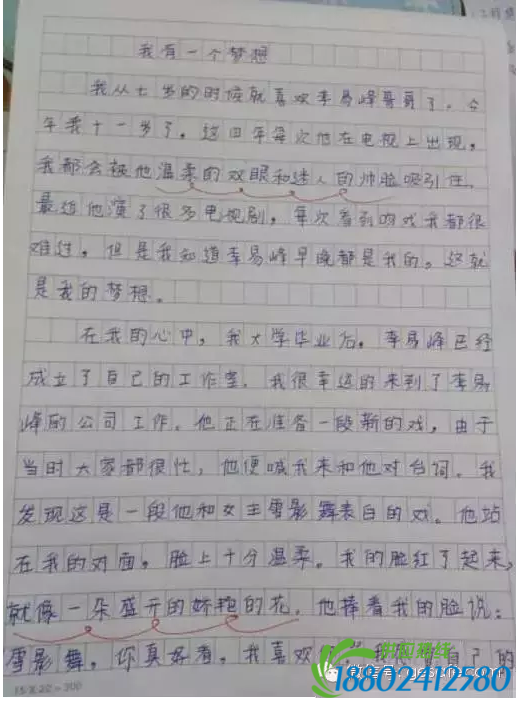 我有一个梦想
我从七岁的时候就喜欢李易峰哥哥了。今
年我十一岁了，这四年每次他在电视上出现，
我都会被他温柔的双眼和迷人的帅脸吸引住。
最近他演了很多电视剧，每次看到吻戏我都很
难过，但是我知道李易峰早晚都是我的，这就
是我的梦想。
在我的心中，我大学毕业后，李易峰已经
成立了自己的工作室，我很幸运的来到了李易
峰的公司工作。他正在准备一段新的戏，由于
当时大家都很忙，他便喊我来和他对台词。我
发现这是一段他和女主雪影舞表白的戏。他站
在我的对面，脸上十分温柔。我的脸红了起来，
就像一朵盛开的娇艳的花。他捧着我的脸说：
雪影舞，你真好看，我喜欢 自己的
15×22=300
18802412580